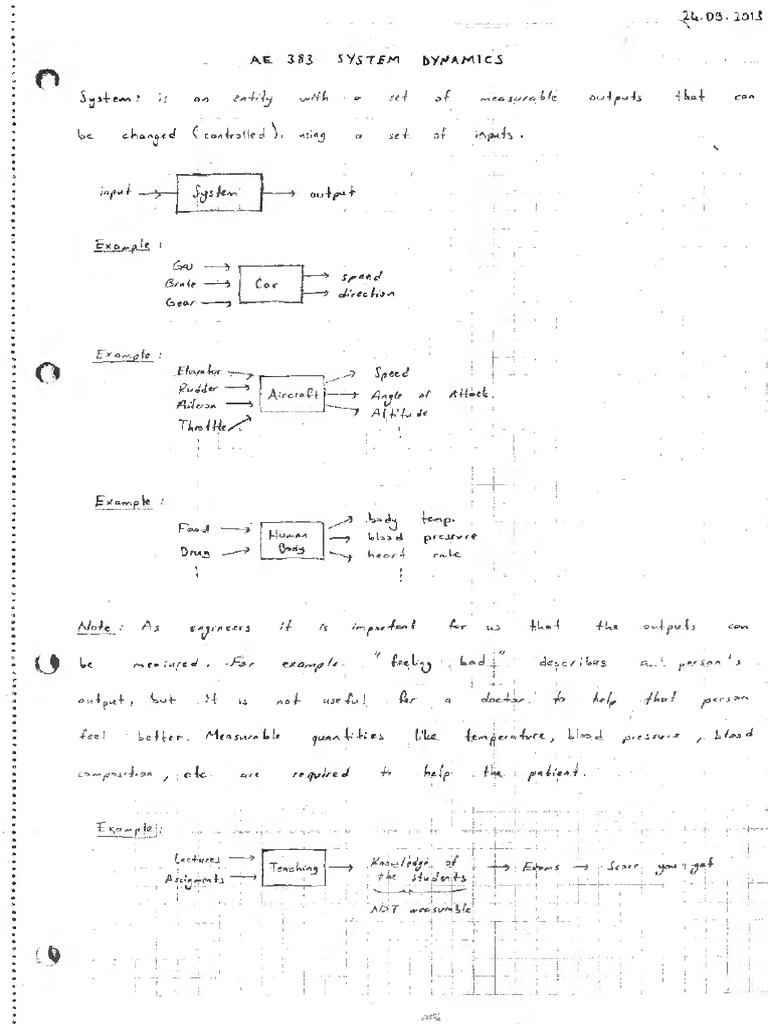 24.09.2013
AE 383 SYSTEM DYNAMICS
System: is an entity with a set of measurable outputs that can
be changed (controlled), using a set of inputs.
input → System → output
Example:
Gas
Brake
Gear
Car
speed
direction
Example:
Elevator
Rudder
Aileron
Throttle
Aircraft
Speed
Angle of Attack.
Altitude
Example:
Food
Drug
Human
Body
body temp.
blood pressure
heart rate
Note: As engineers it is important for us that the outputs can
be measured. For example "feeling bad" describes a person's
output, but it is not useful for a doctor to help that person
feel better. Measurable quantities like temperature, blood pressure, blood
composition, etc are required to help the patient.
Example:
Lectures
Assigments
Teaching
Knowledge of
the students
→ Exams → Score you get
NOT measurable